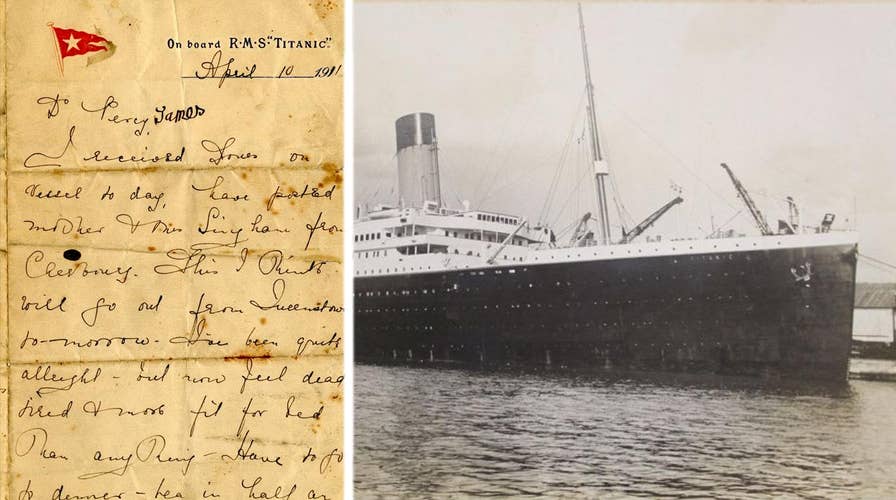 On board R·M·S. "TITANIC".
April 10 1911
Dr Percy, James
I received Yours on
vessel to day, have posted
mother & Mrs Lingham from
Cherbourg. This I think
will go out from Queenstown
to-morrow. I've been quite
allright - but now feel dead
tired & more fit for bed
than anything - Have to go
to dinner - tea in half an
TITANIC